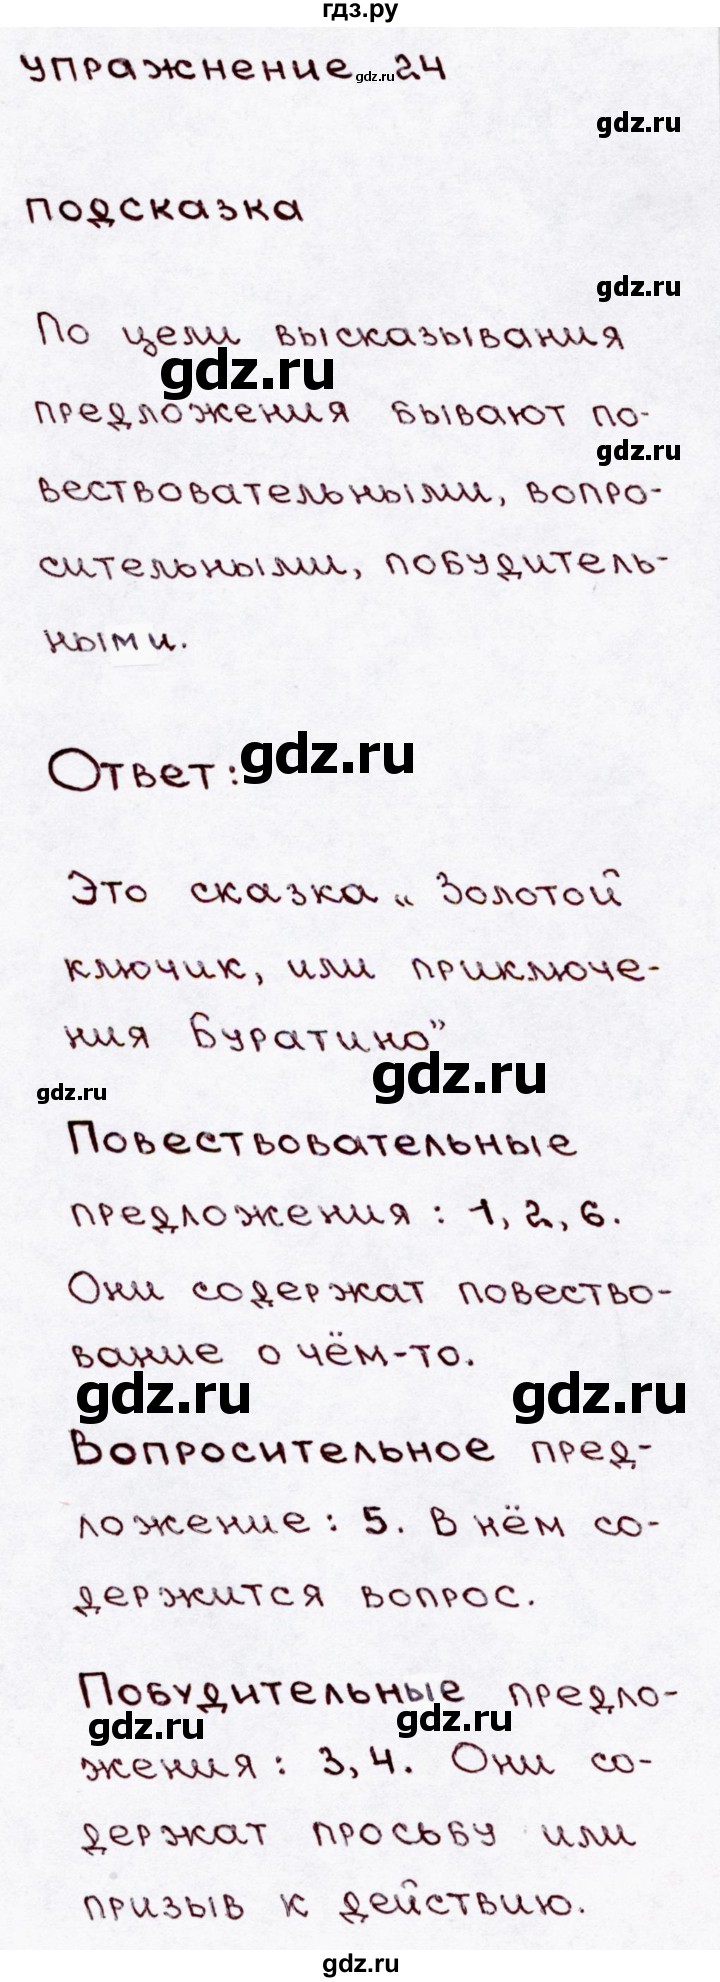 гдз.ру
упражнение gdz.ru 24
gdz.ru
подсказка
gdz.ru
По цели высказывания
gdz.ru
предложения бывают по-
gdz.ru
вествовательными, вопро-
сительными, побудитель-
ными.
Ответ: gdz.ru
Это сказка „ Золотой
ключик, или приключе-
ния Буратино”
gdz.ru
gdz.ru
Повествовательные
предложения : 1, 2, 6.
Они содержат повество-
вание о чём-то.
gdz.ru gdz.ru
Вопросительное пред-
ложение : 5. В нём со-
держится вопрос.
Побудительные предло-
gdz.ru gdz.ru
жения : 3, 4. Они со-
держат просьбу или
призыв к действию.
gdz.ru